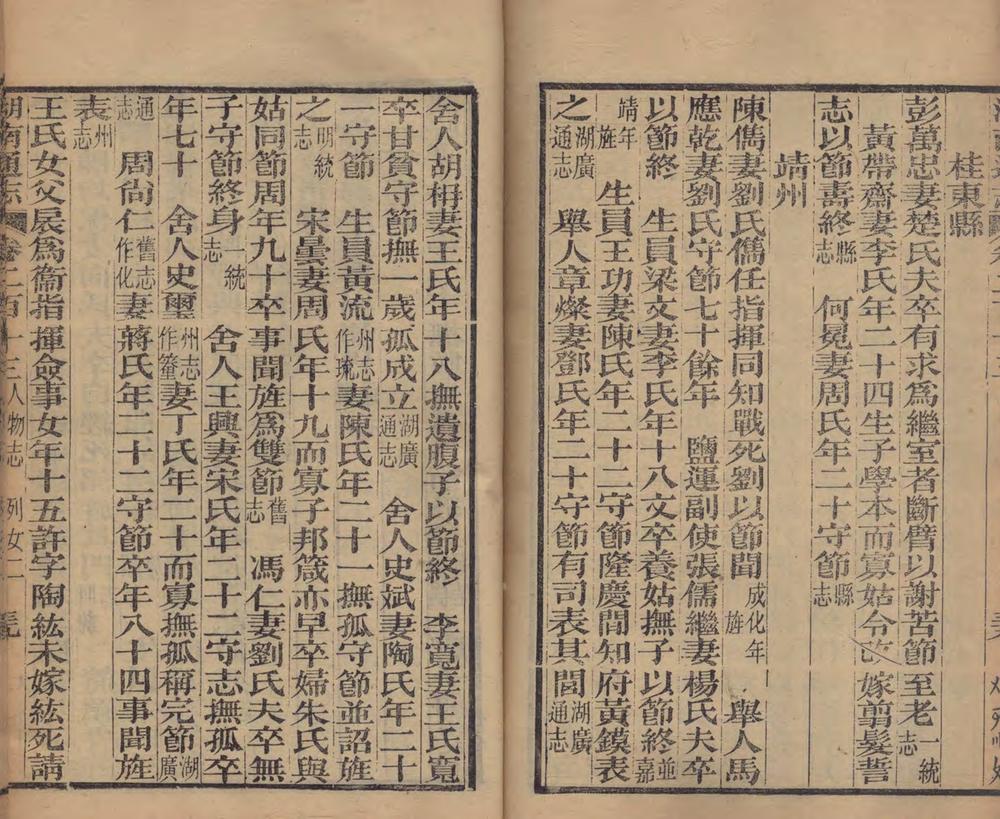 桂東縣
彭萬忠妻楚氏夫卒有求爲繼室者斷臂以謝苦節至老一統志
黃帶齋妻李氏年二十四生子學本而寡姑令改嫁翦髮誓
志以節壽終縣志 何冕妻周氏年二十守節縣志
靖州
陳儁妻劉氏儁任指揮同知戰死劉以節聞成化年旌 舉人馬
應乾妻劉氏守節七十餘年 鹽運副使張儒繼妻楊氏夫卒
以節終 生員梁文妻李氏年十八文卒養姑撫子以節終並嘉
靖年旌 生員王功妻陳氏年二十二守節隆慶閒知府黃鏌表
之湖廣通志 舉人章燦妻鄧氏年二十守節有司表其閭湖廣通志
舍人胡枏妻王氏年十八撫遺腹子以節終 李寬妻王氏寬
卒甘貧守節撫一歲孤成立湖廣通志 舍人史斌妻陶氏年二十
一守節 生員黃流州志作琉妻陳氏年二十一撫孤守節並詔旌
之明統志 宋曇妻周氏年十九而寡子邦箴亦早卒婦朱氏與
姑同節周年九十卒事聞旌爲雙節舊志 馮仁妻劉氏夫卒無
子守節終身一統志 舍人王興妻宋氏年二十二守志撫孤卒
年七十 舍人史璽州志作𥫣妻丁氏年二十而寡撫孤稱完節湖廣
通志 周尙仁舊志作化妻蔣氏年二十二守節卒年八十四事聞旌
表州志
王氏女父扆爲衞指揮僉事女年十五許字陶紘未嫁紘死請
湖南通志 卷二百十三人物志 列女一